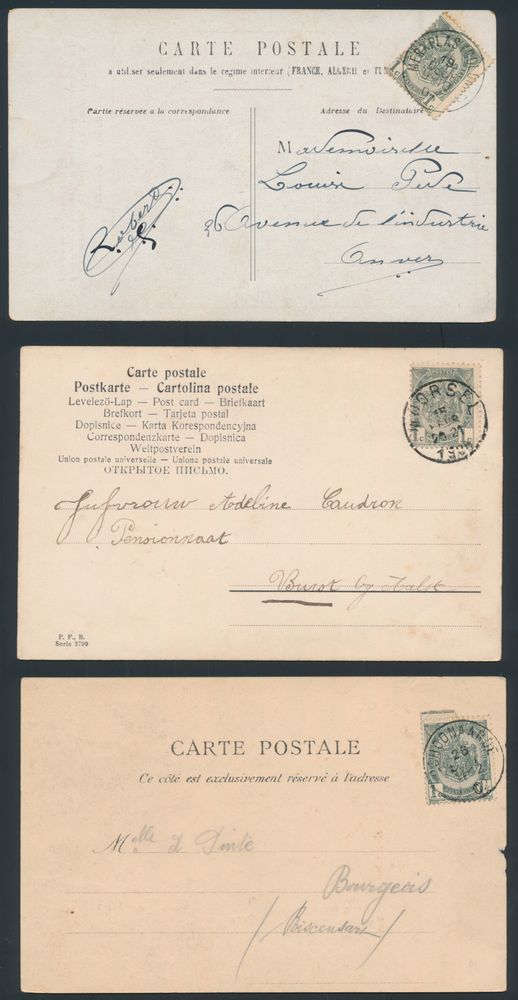 CARTE POSTALE
à utiliser seulement dans le régime intérieur (FRANCE, ALGERIE et
Partie réservée à la correspondance
Adresse du Destinataire
Mademoiselle
Louise
26 Avenue de l'industrie
Anvers
Carte postale
Postkarte — Cartolina postale
Levelező-Lap — Post card — Briefkaart
Brefkort — Tarjeta postal
Dopisnice — Karta Korespondencyjna
Correspondenzkarte — Dopisnica
Weltpostverein
Union postale universelle — Unione postale universale
ОТКРЫТОЕ ПИСЬМО.
MOORSEL
Jufvrouw Adeline Caudron
Pensionnaat
Burst by Aalst
P. F., B.
Serie 3799
CARTE POSTALE
Ce côté est exclusivement réservé à l'adresse
SCHOONAARDE
Melle
Bourgeois